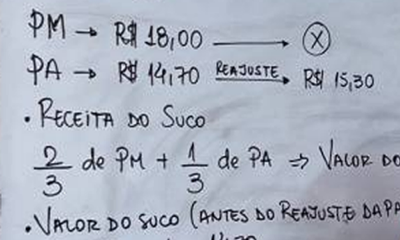 PM → R$ 18,00 → X
PA → R$ 14,70 REAJUSTE → R$ 15,30
• RECEITA DO SUCO
2/3 de PM + 1/3 de PA ⇒ VALOR DO
• VALOR DO SUCO (ANTES DO REAJUSTE DA PA